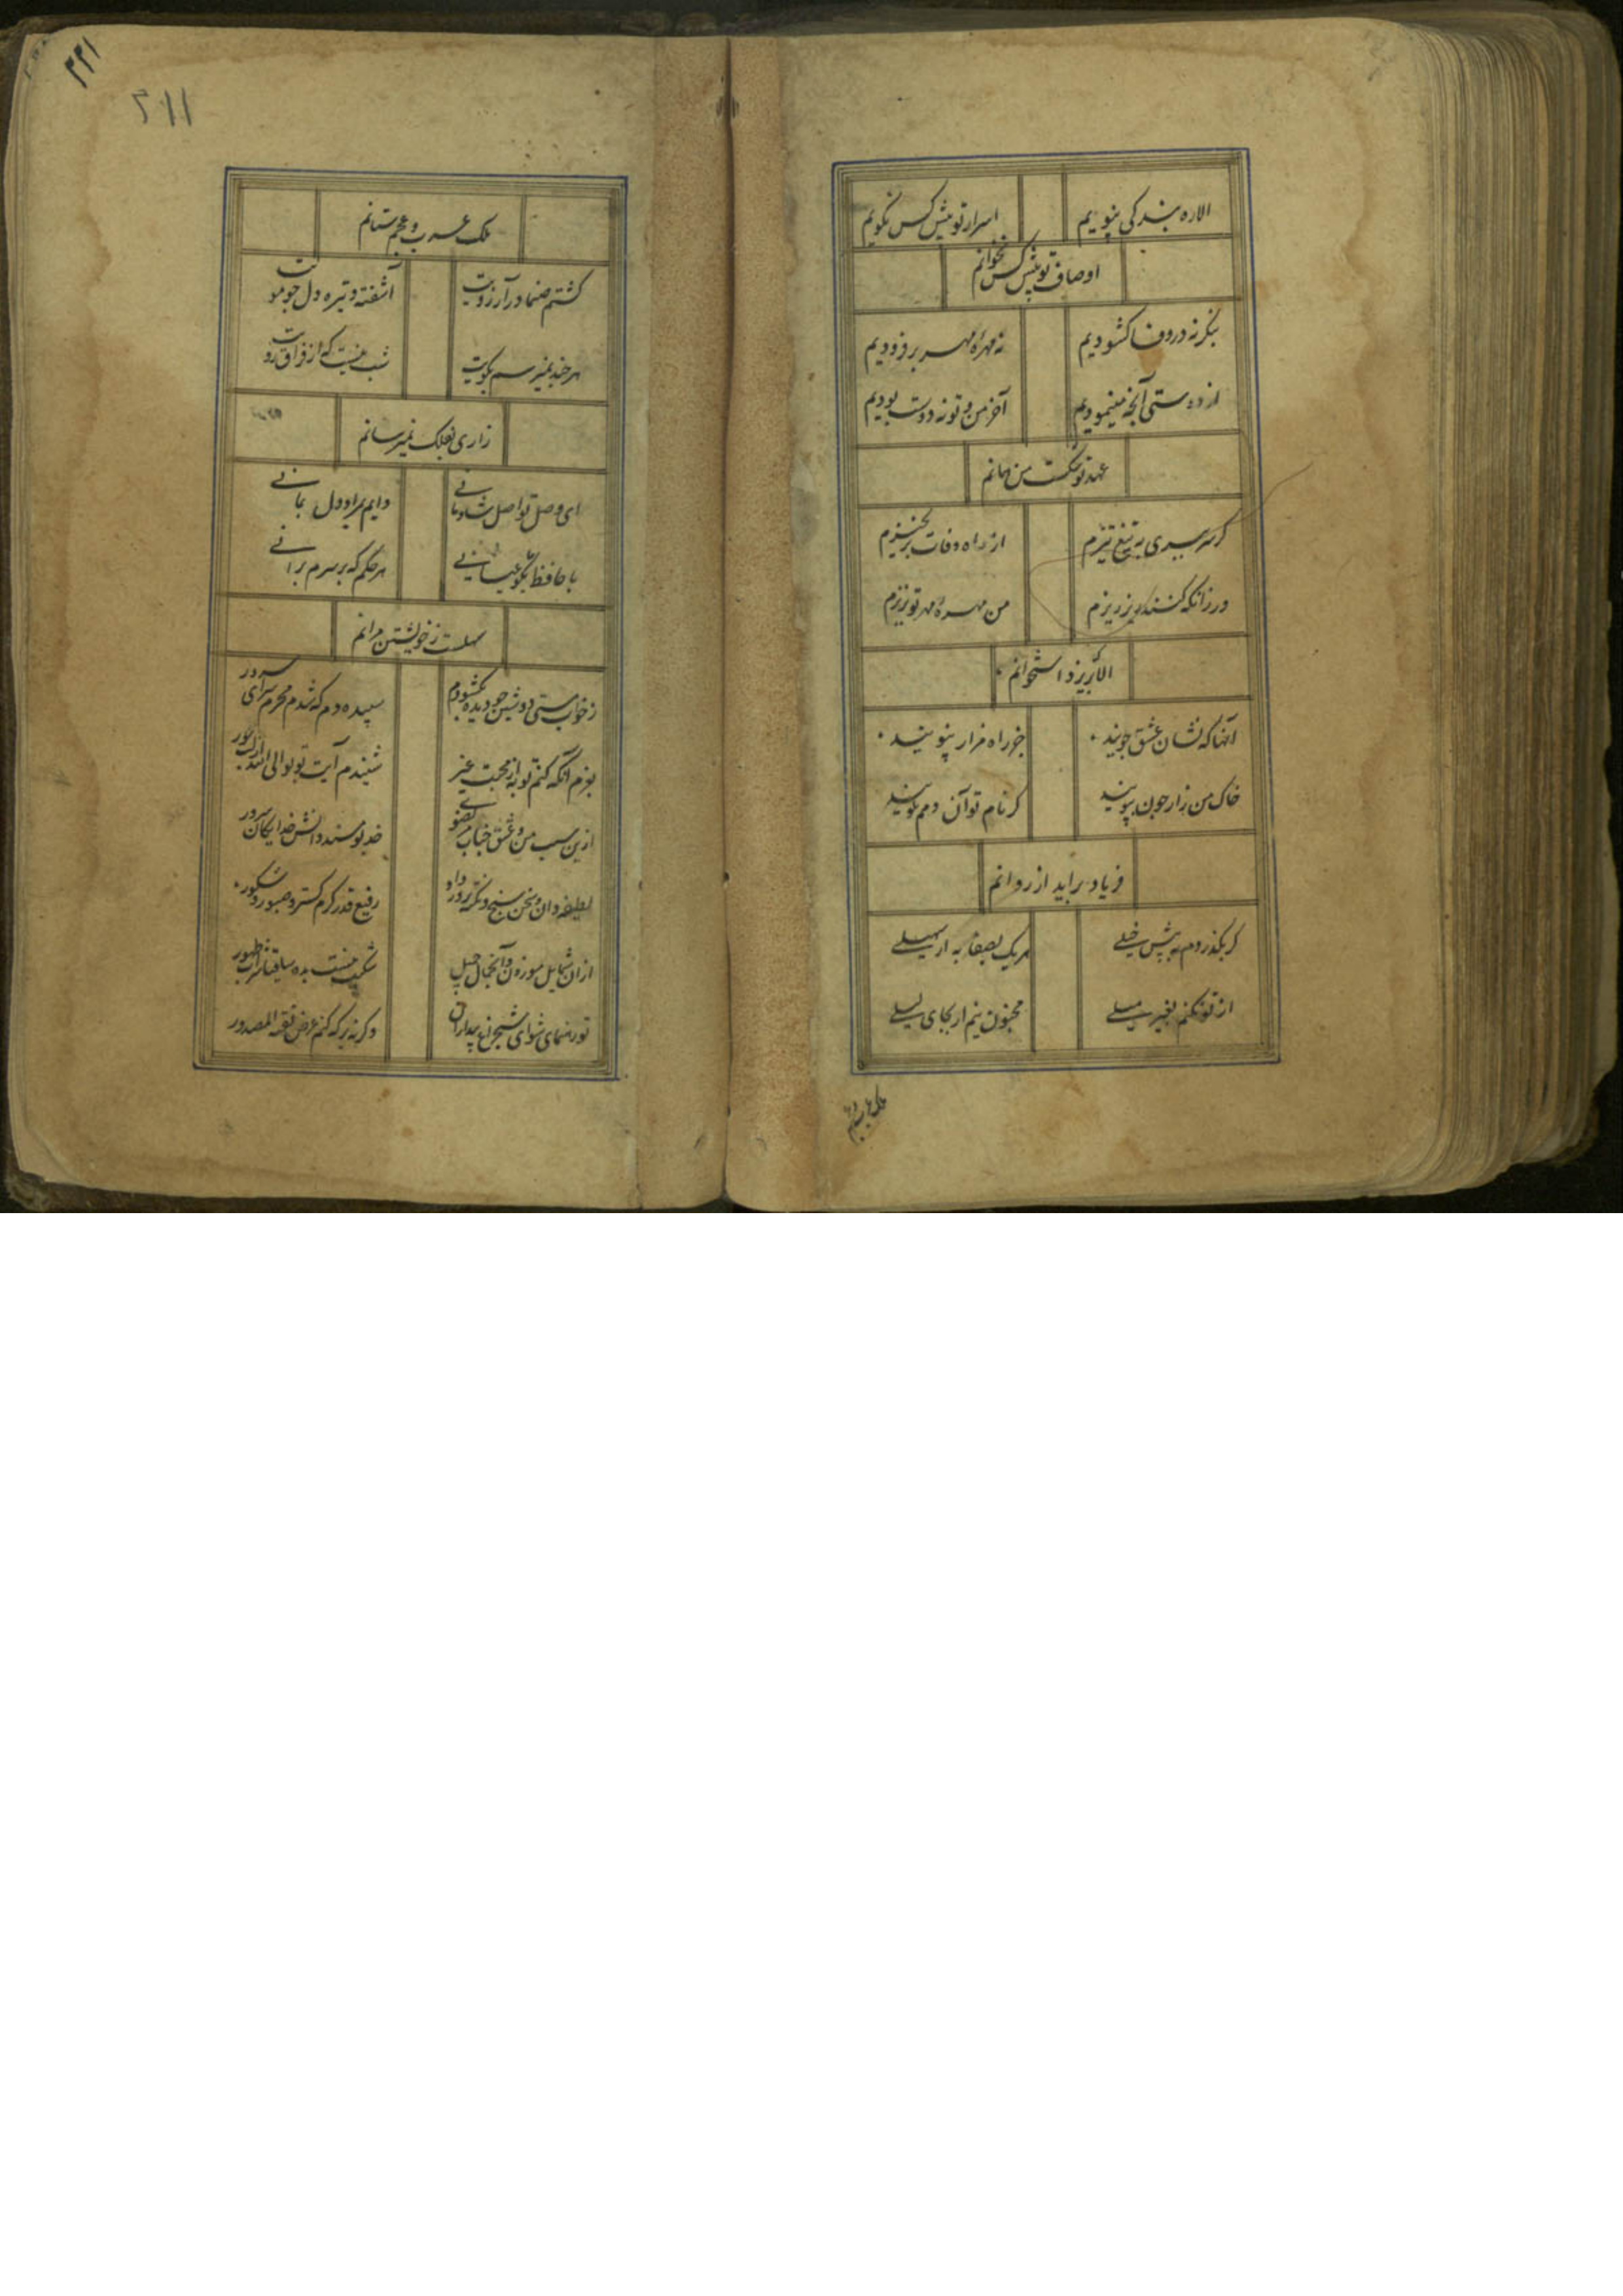 الا ره بندکی نپویم اسرار تو پیش کس نکویم
اوصاف تو پیش کس نخوانم
بنکر نه در وفا کشودیم نه مهر مهر بر فزودیم
از دوستی آنچه مینمودیم آخر من و تو نه دوست بودیم
عهد تو شکست من همانم
کر سر ببری به تیغ تیزم از راه وفات بر نخیزم
ور زانکه کنند ریز ریزم من مهره مهر تو نریزم
الا که بریزد استخوانم
آنها که نشان عشق جویند جز راه مزار من نپویند
خاک من زار چون ببویند کر نام تو آن دمم بکویند
فریاد بر اید از روانم
کر بکذردم به پیش خیلی هر یک بصفا به از سهیلی
از تو نکنم بغیر میلی مجنون نیم ار بجای لیلی
ملک عرب
۲۲۱
۲۱۱
ملک عرب و عجم ستانم
کشتم صنما در آرزویت آشفته و تیره دل چو مویت
هر چند نمیرسم بکویت شب نیست که از فراق رویت
زاری بفلک نمیرسانم
ای وصل تو اصل شادمانی دایم بمراد دل بمانی
با حافظ هر حکم که بر سرم برانی
سهلست ز خویشتن مرانم
ز خواب مستی دوشین چو دیده بکشودم سپیده دم که شدم محرم سرای سرور
بعزم آنکه کنم توبه از محبت غیر شنیدم آیت توبوا الی الله
ازین سبب من و عشق جناب خدیو مسند دانش خدایکان سرور
لطیفه دان و سخن سنج و رفیع قدر کرم کستر و صبور و شکور
از ان شمایل موزون و آن جمال جمیل شکیب نیست بده ساقیا شراب طهور
تو رهنمای شو ای وکرنه بر که کنم عرض نفثة المصدور